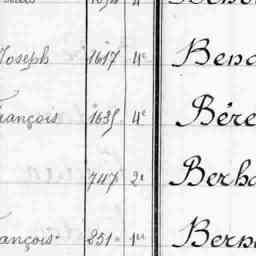 Joseph 1617 4e Bend
rançois 1635 4e Bére
747 2e Berha
ançois 251 1re Bern